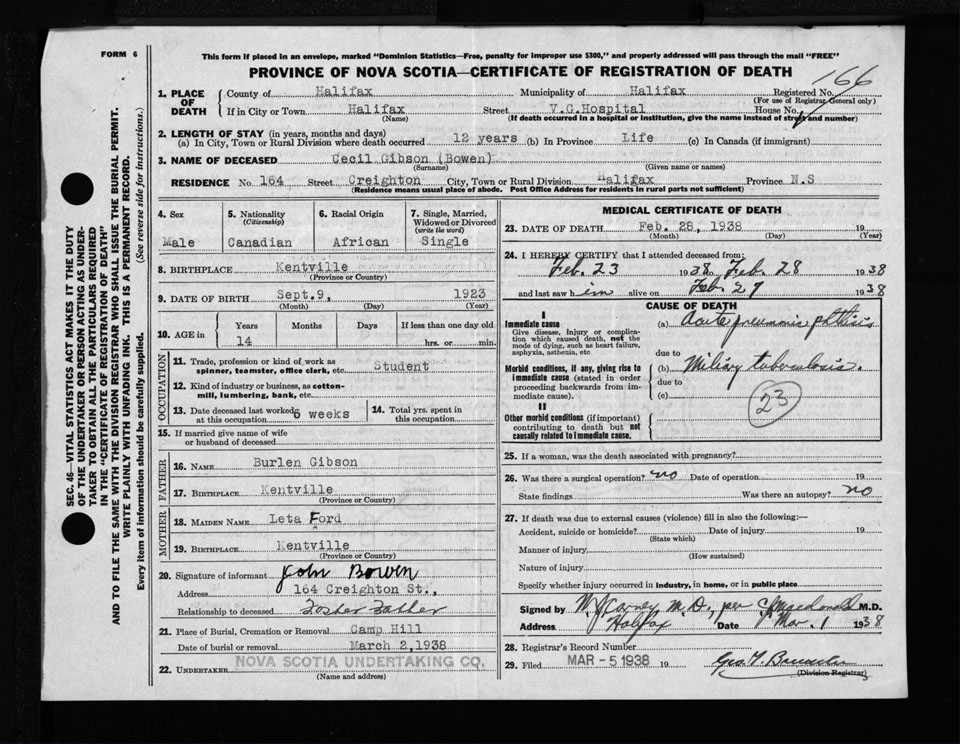 FORM 6
This form if placed in an envelope, marked "Dominion Statistics—Free, penalty for improper use $300," and properly addressed will pass through the mail "FREE"
PROVINCE OF NOVA SCOTIA—CERTIFICATE OF REGISTRATION OF DEATH
166
1. PLACE OF DEATH County of Halifax Municipality of Halifax Registered No.
(For use of Registrar-General only)
If in City or Town Halifax Street V.G.Hospital House No.
(Name) (If death occurred in a hospital or institution, give the name instead of street and number)
2. LENGTH OF STAY (in years, months and days)
(a) In City, Town or Rural Division where death occurred 12 years (b) In Province Life (c) In Canada (if immigrant)
3. NAME OF DECEASED Cecil Gibson (Bowen)
(Surname) (Given name or names)
RESIDENCE No. 164 Street Creighton City, Town or Rural Division Halifax Province N.S
(Residence means usual place of abode. Post Office Address for residents in rural parts not sufficient)
4. Sex 5. Nationality (Citizenship) 6. Racial Origin 7. Single, Married, Widowed or Divorced (write the word)
Male Canadian African Single
8. BIRTHPLACE Kentville
(Province or Country)
9. DATE OF BIRTH Sept.9, 1923
(Month) (Day) (Year)
10. AGE in Years Months Days If less than one day old
14 hrs. or min.
OCCUPATION
11. Trade, profession or kind of work as spinner, teamster, office clerk, etc. Student
12. Kind of industry or business, as cotton-mill, lumbering, bank, etc.
13. Date deceased last worked at this occupation 6 weeks 14. Total yrs. spent in this occupation
15. If married give name of wife or husband of deceased
FATHER
16. NAME Burlen Gibson
17. BIRTHPLACE Kentville
(Province or Country)
MOTHER
18. MAIDEN NAME Leta Ford
19. BIRTHPLACE Kentville
(Province or Country)
20. Signature of informant John Bowen
Address 164 Creighton St.,
Relationship to deceased Foster Father
21. Place of Burial, Cremation or Removal Camp Hill
Date of burial or removal March 2,1938
22. UNDERTAKER NOVA SCOTIA UNDERTAKING CO.
(Name and address)
MEDICAL CERTIFICATE OF DEATH
23. DATE OF DEATH Feb. 28, 1938 19
(Month) (Day) (Year)
24. I HEREBY CERTIFY that I attended deceased from:
Feb. 23 1938 to Feb. 28 1938
and last saw him alive on Feb. 27 1938
CAUSE OF DEATH
I
Immediate cause (a) Acute pneumonic phthisis
Give disease, injury or complication which caused death, not the mode of dying, such as heart failure, asphyxia, asthenia, etc
due to
Morbid conditions, if any, giving rise to immediate cause (stated in order proceeding backwards from immediate cause). (b) Miliary tuberculosis.
due to
(c)
23
II
Other morbid conditions (if important) contributing to death but not causally related to immediate cause.
25. If a woman, was the death associated with pregnancy?
26. Was there a surgical operation? no Date of operation 19
State findings Was there an autopsy? no
27. If death was due to external causes (violence) fill in also the following:—
Accident, suicide or homicide? Date of injury 19
(State which)
Manner of injury
(How sustained)
Nature of injury
Specify whether injury occurred in industry, in home, or in public place
Signed by M.J Carney M.D., per C Macdonald M.D.
Address Halifax Date Mar. 1 1938
28. Registrar's Record Number
29. Filed MAR - 5 1938 19
(Division Registrar)
SEC. 46—VITAL STATISTICS ACT MAKES IT THE DUTY
OF THE UNDERTAKER OR PERSON ACTING AS UNDER-
TAKER TO OBTAIN ALL THE PARTICULARS REQUIRED
IN THE "CERTIFICATE OF REGISTRATION OF DEATH"
AND TO FILE THE SAME WITH THE DIVISION REGISTRAR WHO SHALL ISSUE THE BURIAL PERMIT.
WRITE PLAINLY WITH UNFADING INK. THIS IS A PERMANENT RECORD.
Every item of information should be carefully supplied. (See reverse side for instructions.)